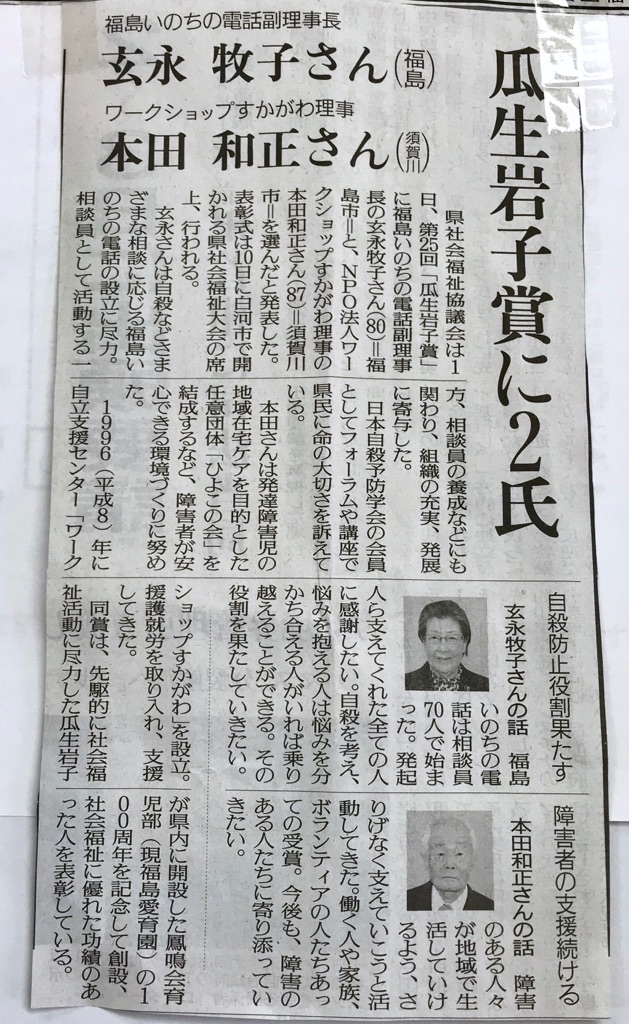 瓜生岩子賞に2氏
福島いのちの電話副理事長
玄永 牧子さん(福島)
ワークショップすかがわ理事
本田 和正さん(須賀川)
県社会福祉協議会は1
日、第25回「瓜生岩子賞」
に福島いのちの電話副理事
長の玄永牧子さん(80)=福
島市=と、NPO法人ワー
クショップすかがわ理事の
本田和正さん(87)=須賀川
市=を選んだと発表した。
表彰式は10日に白河市で開
かれる県社会福祉大会の席
上、行われる。
玄永さんは自殺などさま
ざまな相談に応じる福島い
のちの電話の設立に尽力。
相談員として活動する一
方、相談員の養成などにも
関わり、組織の充実、発展
に寄与した。
日本自殺予防学会の会員
としてフォーラムや講座で
県民に命の大切さを訴えて
いる。
本田さんは発達障害児の
地域在宅ケアを目的とした
任意団体「ひよこの会」を
結成するなど、障害者が安
心できる環境づくりに努め
た。
1996(平成8)年に
自立支援センター「ワーク
ショップすかがわ」を設立。
援護就労を取り入れ、支援
してきた。
同賞は、先駆的に社会福
祉活動に尽力した瓜生岩子
が県内に開設した鳳鳴会育
児部(現福島愛育園)の1
00周年を記念して創設、
社会福祉に優れた功績のあ
った人を表彰している。
自殺防止役割果たす
玄永牧子さんの話 福島
いのちの電
話は相談員
70人で始ま
った。発起
人ら支えてくれた全ての人
に感謝したい。自殺を考え、
悩みを抱える人は悩みを分
かち合える人がいれば乗り
越えることができる。その
役割を果たしていきたい。
障害者の支援続ける
本田和正さんの話 障害
のある人々
が地域で生
活していけ
るよう、さ
りげなく支えていこうと活
動してきた。働く人や家族、
ボランティアの人たちあっ
ての受賞。今後も、障害の
ある人たちに寄り添ってい
きたい。